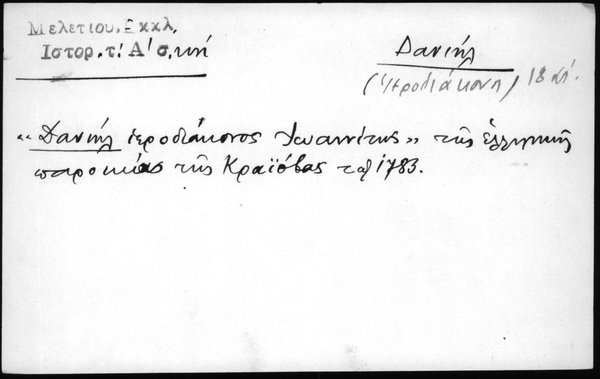 Μελετίου, Εκκλ.
Ιστορ. τ. Α' σ. κνή
Δανιήλ
(Ιεροδιάκονος) 18 αἰ.
«Δανιήλ ἱεροδιάκονος Ἰωαννίτης» τῆς ἑλληνικῆς
παροικίας τῆς Κραϊόβας τῷ 1783.